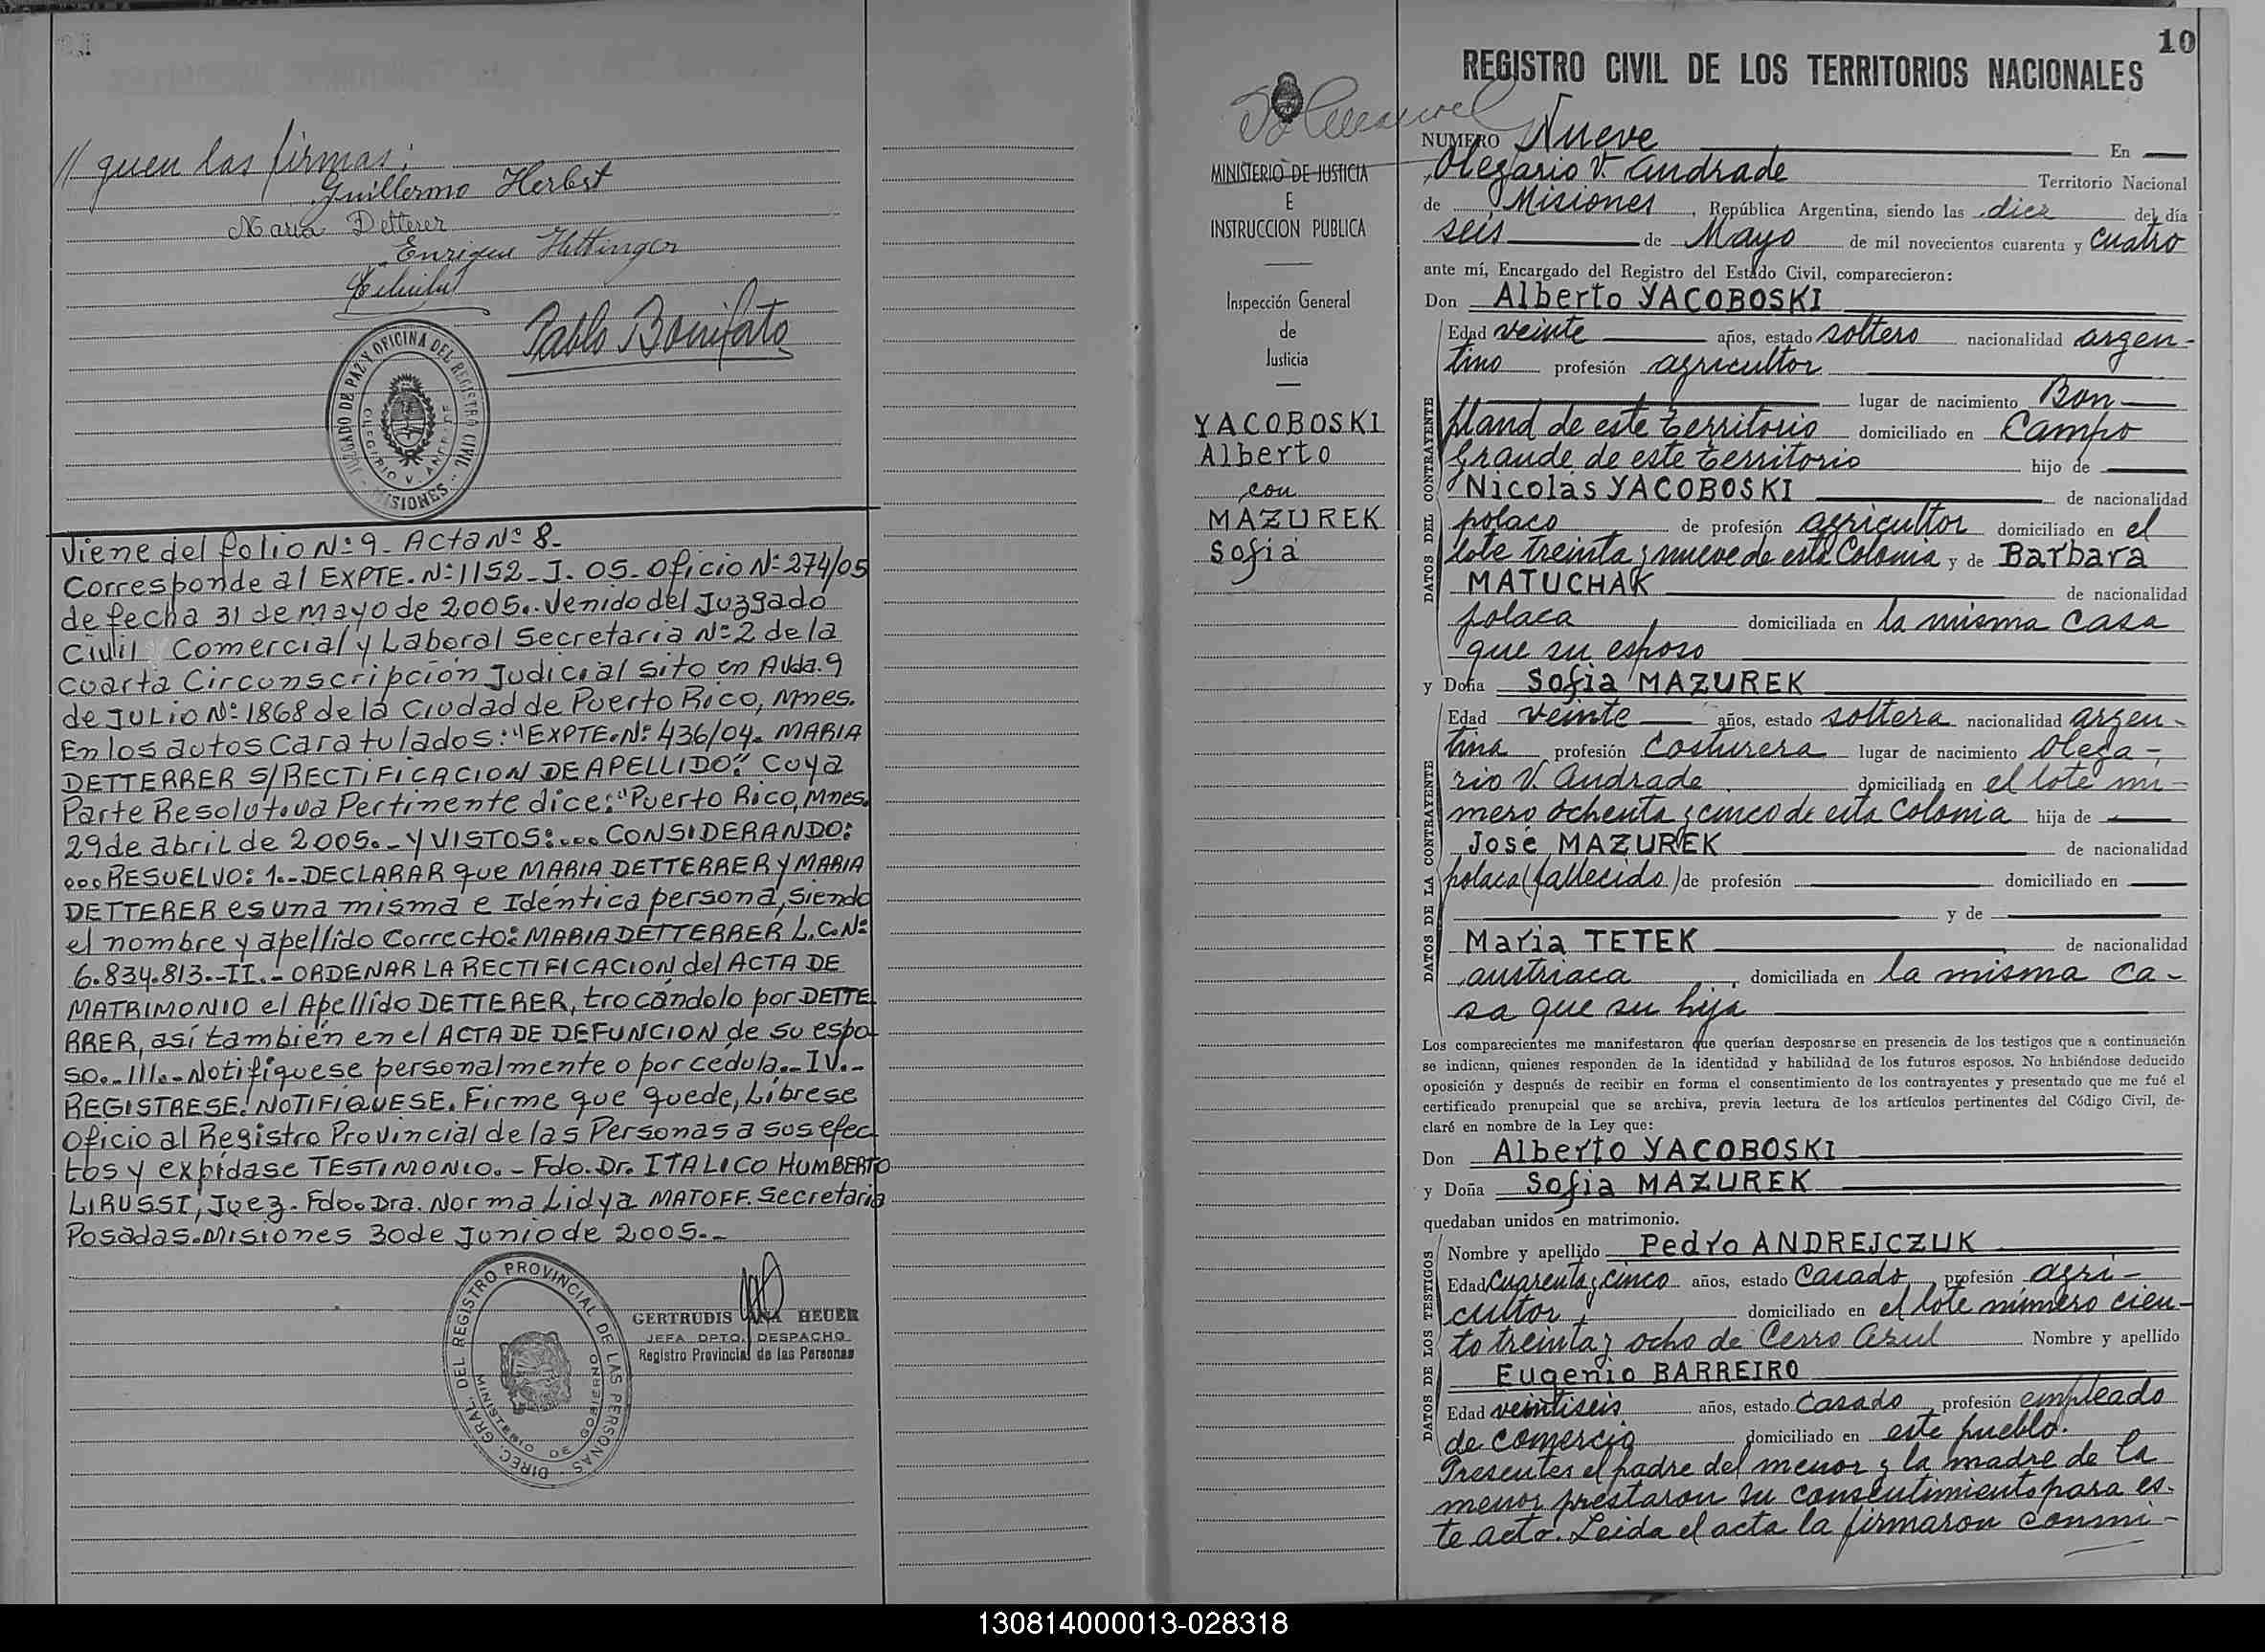 // quen las firmas:
Guillermo Herbst
Maria Detterer
Enrique Hettinger
Pablo Bonifato
JUZGADO DE PAZ Y OFICINA DEL REGISTRO CIVIL
OLEGARIO V. ANDRADE
MISIONES
Viene del folio Nº 9 - Acta Nº 8.-
Corresponde al EXPTE. Nº 1152 - J. 05 - Oficio Nº 274/05
de fecha 31 de mayo de 2005.. Venido del Juzgado
Civil Comercial y Laboral Secretaria Nº 2 de la
cuarta Circunscripción Judicial sito en Avda. 9
de JULIO Nº 1868 de la ciudad de Puerto Rico, Mnes.
En los autos caratulados: "EXPTE. Nº 436/04. MARIA
DETTERRER S/RECTIFICACION DE APELLIDO". Cuya
Parte Resolutiva Pertinente dice: "Puerto Rico, Mnes.
29 de abril de 2005.- Y VISTOS:... CONSIDERANDO:
...RESUELVO: 1.- DECLARAR que MARIA DETTERRER Y MARIA
DETTERER es una misma e Idéntica persona, siendo
el nombre y apellido Correcto: MARIA DETTERRER L.C.Nº
6.834.813.- II.- ORDENAR LA RECTIFICACION del ACTA DE
MATRIMONIO el Apellido DETTERER, trocándolo por DETTE
RRER, así también en el ACTA DE DEFUNCION de su espo
so.- III.- Notifíquese personalmente o por cédula.- IV.-
REGISTRESE. NOTIFÍQUESE. Firme que quede, Líbrese
Oficio al Registro Provincial de las Personas a sus efec
tos y expídase TESTIMONIO.- Fdo. Dr. ITALICO HUMBERTO
LIRUSSI, Juez. Fdo. Dra. Norma Lidya MATOFF. Secretaria
Posadas. Misiones 30 de Junio de 2005.-
DIREC. GRAL. DEL REGISTRO PROVINCIAL DE LAS PERSONAS
MINISTERIO DE GOBIERNO
GERTRUDIS ANA HEUER
JEFA DPTO. DESPACHO
Registro Provincial de las Personas
10
REGISTRO CIVIL DE LOS TERRITORIOS NACIONALES
MINISTERIO DE JUSTICIA
E
INSTRUCCION PUBLICA
Inspección General
de
Justicia
YACOBOSKI
Alberto
con
MAZUREK
Sofia
NUMERO Nueve En
Olegario V. Andrade Territorio Nacional
de Misiones, República Argentina, siendo las diez del día
seis de Mayo de mil novecientos cuarenta y cuatro
ante mí, Encargado del Registro del Estado Civil, comparecieron:
Don Alberto YACOBOSKI
DATOS DEL CONTRAYENTE
Edad veinte años, estado soltero nacionalidad argen-
tino profesión agricultor
lugar de nacimiento Bon
pland de este territorio domiciliado en Campo
Grande de este territorio hijo de
Nicolás YACOBOSKI de nacionalidad
polaco de profesión agricultor domiciliado en el
lote treinta y nueve de esta Colonia y de Barbara
MATUCHAK de nacionalidad
polaca domiciliada en la misma casa
que su esposo
y Doña Sofia MAZUREK
DATOS DE LA CONTRAYENTE
Edad veinte años, estado soltera nacionalidad argen-
tina profesión Costurera lugar de nacimiento Olega-
rio V. Andrade domiciliada en el lote nú-
mero ochenta y cinco de esta Colonia hija de
José MAZUREK de nacionalidad
polaca (fallecido) de profesión domiciliado en
y de
Maria TETEK de nacionalidad
austriaca, domiciliada en la misma ca-
sa que su hija
Los comparecientes me manifestaron que querían desposarse en presencia de los testigos que a continuación
se indican, quienes responden de la identidad y habilidad de los futuros esposos. No habiéndose deducido
oposición y después de recibir en forma el consentimiento de los contrayentes y presentado que me fué el
certificado prenupcial que se archiva, previa lectura de los artículos pertinentes del Código Civil, de-
claré en nombre de la Ley que:
Don Alberto YACOBOSKI
y Doña Sofia MAZUREK
quedaban unidos en matrimonio.
DATOS DE LOS TESTIGOS
Nombre y apellido Pedro ANDREJCZUK
Edad cuarenta y cinco años, estado Casado, profesión agri-
cultor, domiciliado en el lote número cien-
to treinta y ocho de Cerro Azul Nombre y apellido
Eugenio BARREIRO
Edad veintiseis años, estado Casado, profesión empleado
de comercio domiciliado en este pueblo.
Presentes el padre del menor y la madre de la
menor prestaron su consentimiento para es-
te acto. Leida el acta la firmaron conmi-
130814000013-028318